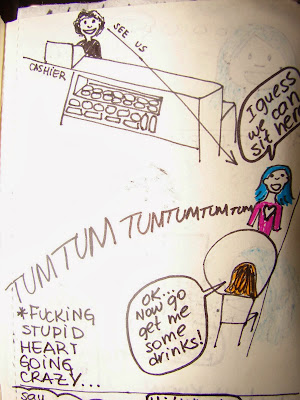 SEE US
CASHIER
I guess
we can
sit here
TUM TUM TUM TUM TUM TUM
OK...
Now go
get me
some
drinks!
*FUCKING
STUPID
HEART
GOING
CRAZY...
say